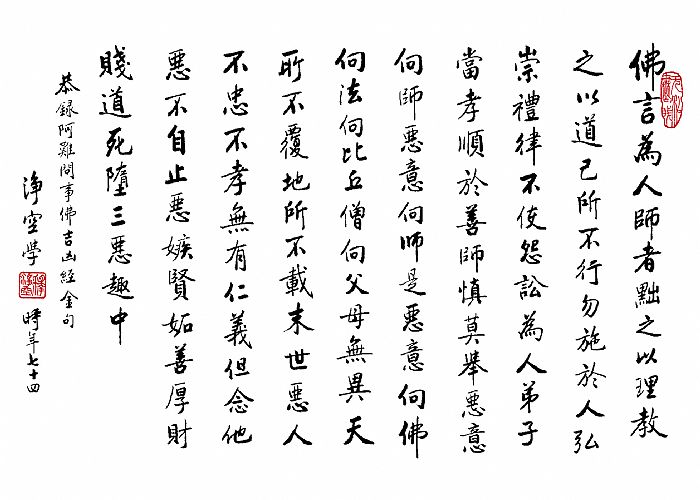 佛言為人師者黜之以理教
之以道己所不行勿施於人弘
崇禮律不使怨訟為人弟子
當孝順於善師慎莫舉惡意
向師惡意向師是惡意向佛
向法向比丘僧向父母無異天
所不覆地所不載末世惡人
不忠不孝無有仁義但念他
惡不自止惡嫉賢妬善厚財
賤道死墮三惡趣中
恭錄阿難問事佛吉凶經金句
淨空學時年七十四